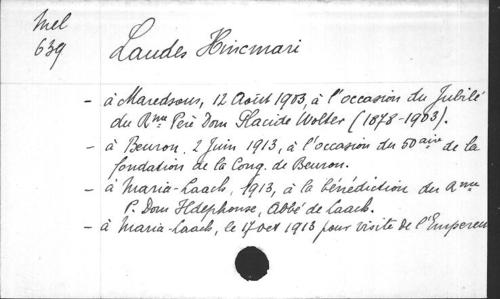 Mel
639
Laudes Hincmari
- à Maredsous, 12 Août 1903, à l'occasion du Jubilé
du Rme Père Dom Placide Wolter (1878-1903).
- à Beuron, 2 Juin 1913, à l'occasion du 50aire de la
fondation de la Cong. de Beuron.
- à Maria-Laach, 1913, à la bénédiction du Rme
P. Dom Ildephonse, Abbé de Laach.
- à Maria-Laach, le 17 oct 1913 pour visite de l'Empereu